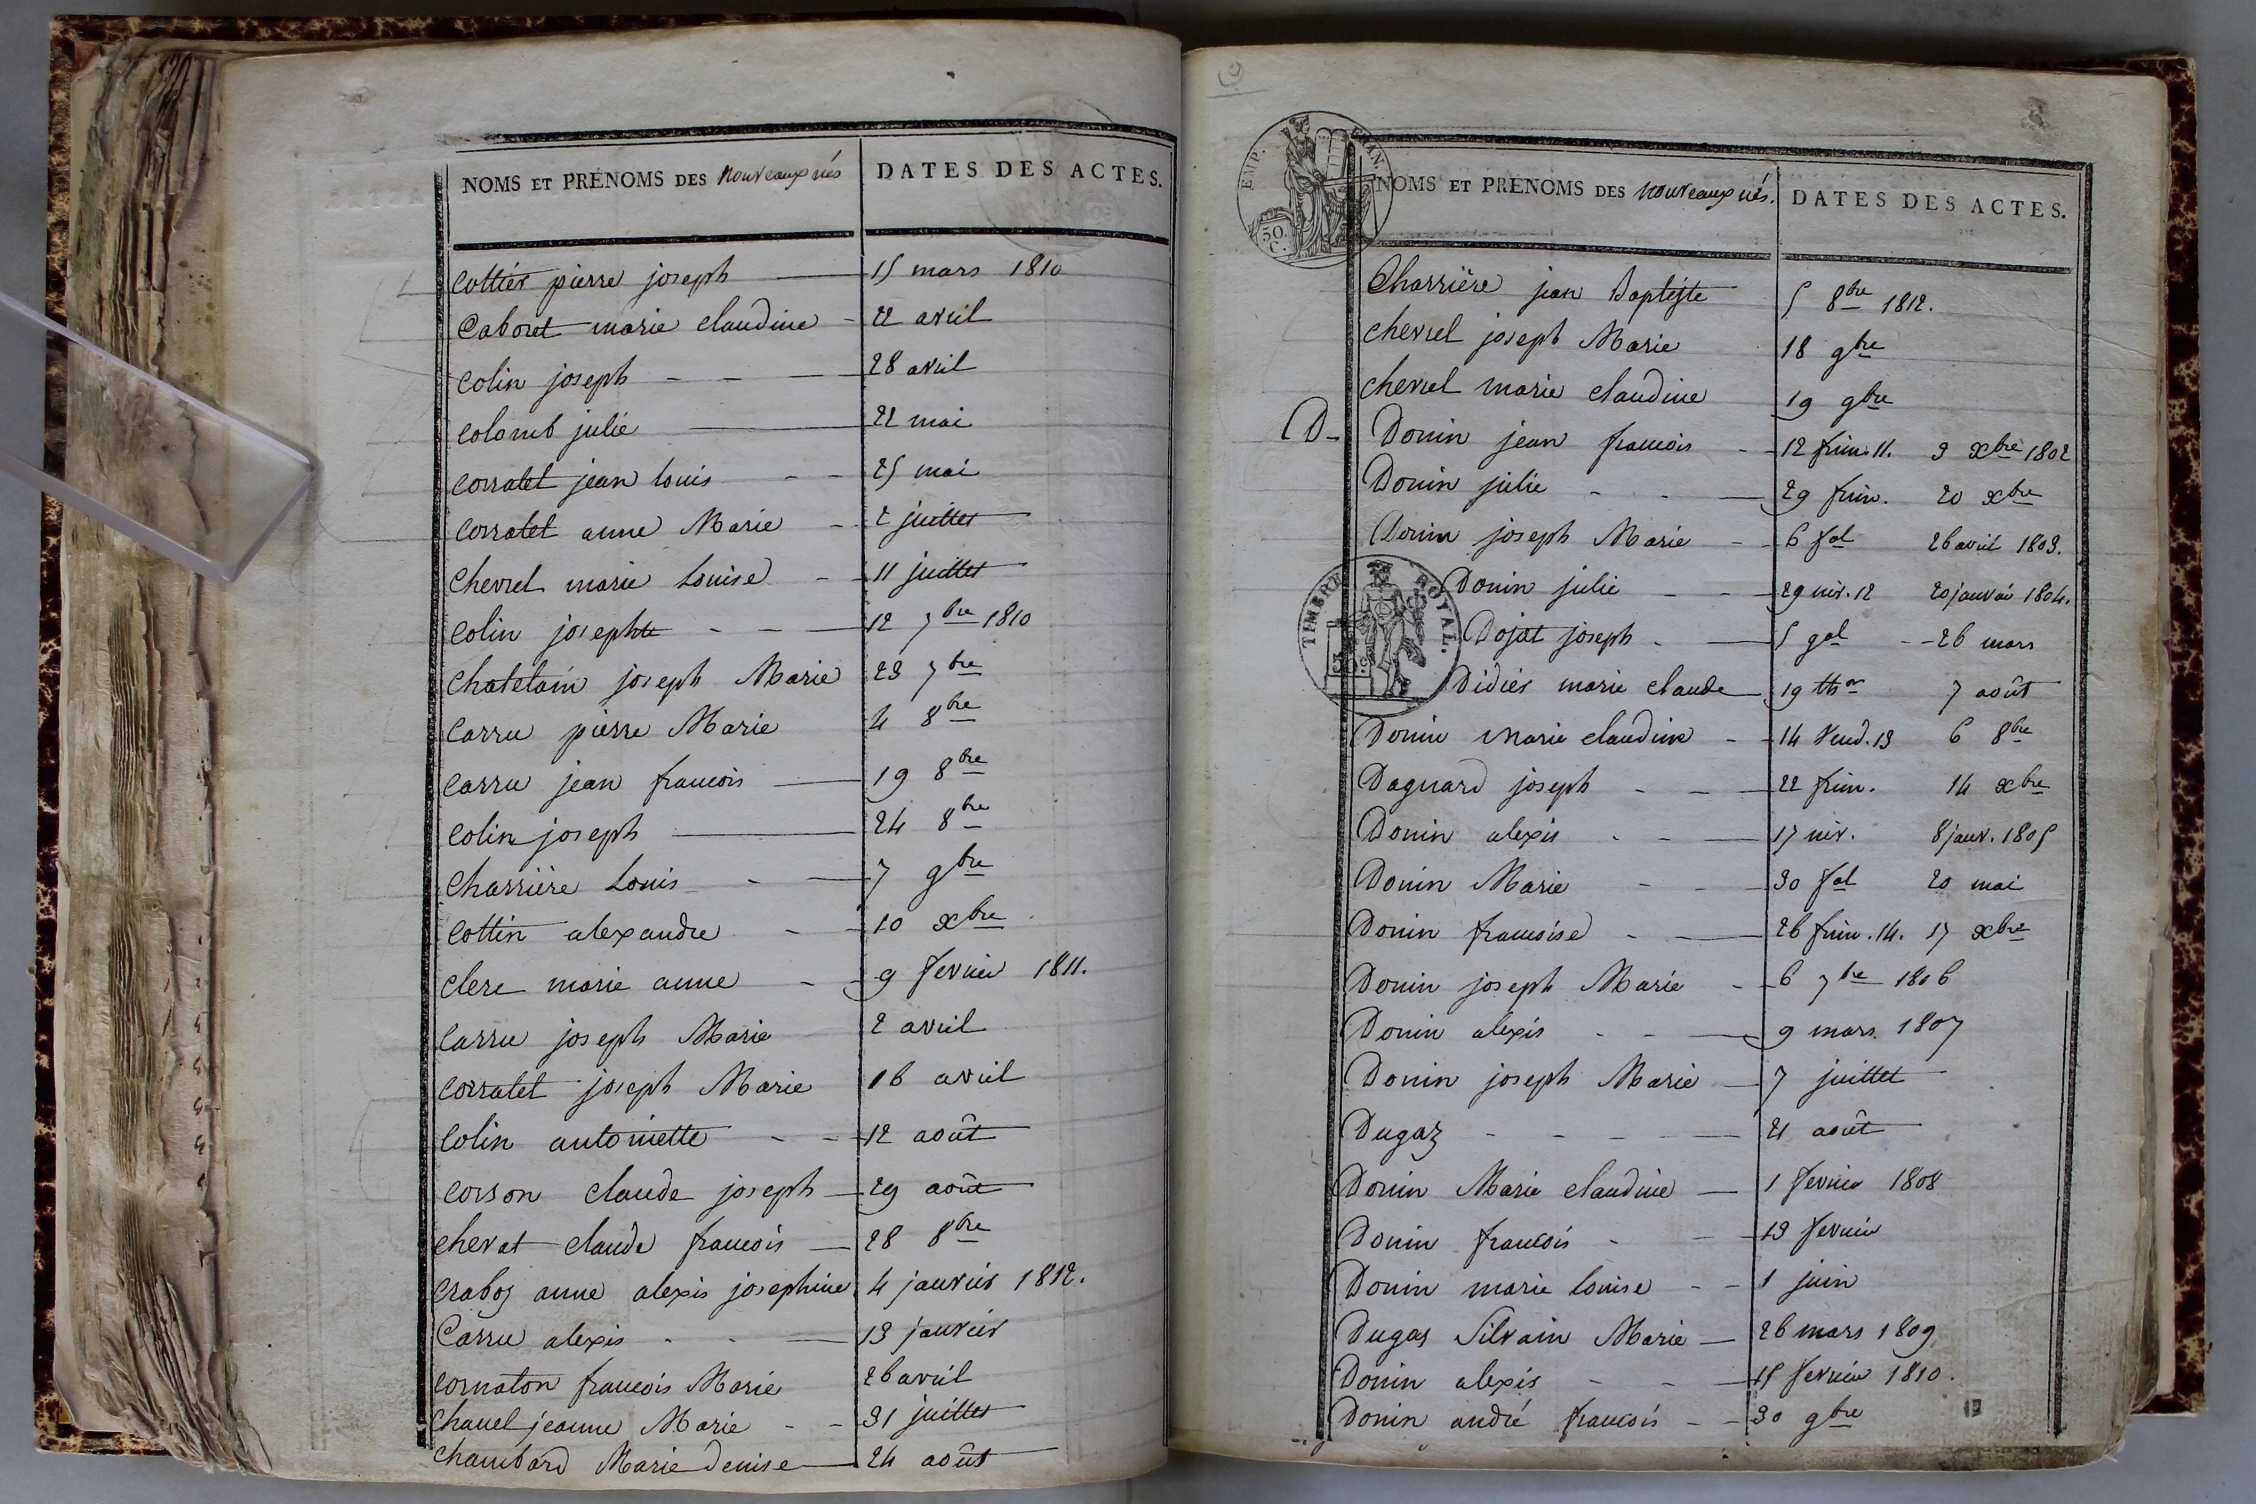 NOMS ET PRÉNOMS DES nouveaux nés DATES DES ACTES.
Cottier pierre joseph 15 mars 1810
Caboret marie claudine 22 avril
Colin joseph 28 avril
Colomb julie 21 mai
Corratet jean louis 25 mai
Corratet anne Marie 2 juillet
Chevrel marie Louise 11 juillet
Colin josephte 12 7bre 1810
Chatelain joseph Marie 23 7bre
Carru pierre Marie 4 8bre
Carru jean francois 19 8bre
Colin joseph 24 8bre
Charrière Louis 7 9bre
Cottin alexandre 10 xbre
Clerc marie anne 9 fevrier 1811.
Carru joseph Marie 2 avril
Corratet joseph Marie 16 avril
Colin antoinette 12 août
Corson claude joseph 29 août
Chevat claude francois 28 8bre
Craboz anne alexis josephine 4 janvier 1812.
Carru alexis 13 janvier
Cornaton francois Marie 26 avril
Chanel jeanne Marie 31 juillet
Chambard Marie Denise 24 août
EMP. FRAN.
50 C.
NOMS ET PRÉNOMS DES nouveaux nés. DATES DES ACTES.
Charrière jean Baptiste 5 8bre 1812.
Chevrel joseph Marie 18 9bre
Chevrel marie claudine 19 9bre
D- Donin jean francois 12 frim. 11. 3 xbre 1802
Donin julie 29 frim. 20 xbre
Donin joseph Marie 6 fal 26 avril 1803.
TIMBRE ROYAL.
Donin julie 29 niv. 12 20 janvier 1804.
Dojat joseph 5 gal 26 mars
Didier marie claude 19 thor 7 août
Donin marie claudine 14 vend. 13 6 8bre
Daguard joseph 22 frim. 14 xbre
Donin alexis 17 niv. 8 janv. 1805
Donin Marie 30 fal 20 mai
Donin francoise 26 frim. 14. 17 xbre
Donin joseph Marie 6 7bre 1806
Donin alexis 9 mars 1807
Donin joseph Marie 7 juillet
Dugaz 21 août
Donin Marie claudine 1 fevrier 1808
Donin francois 13 fevrier
Donin marie louise 1 juin
Dugas Silvain Marie 26 mars 1809
Donin alexis 15 fevrier 1810.
Donin andré francois 30 9bre